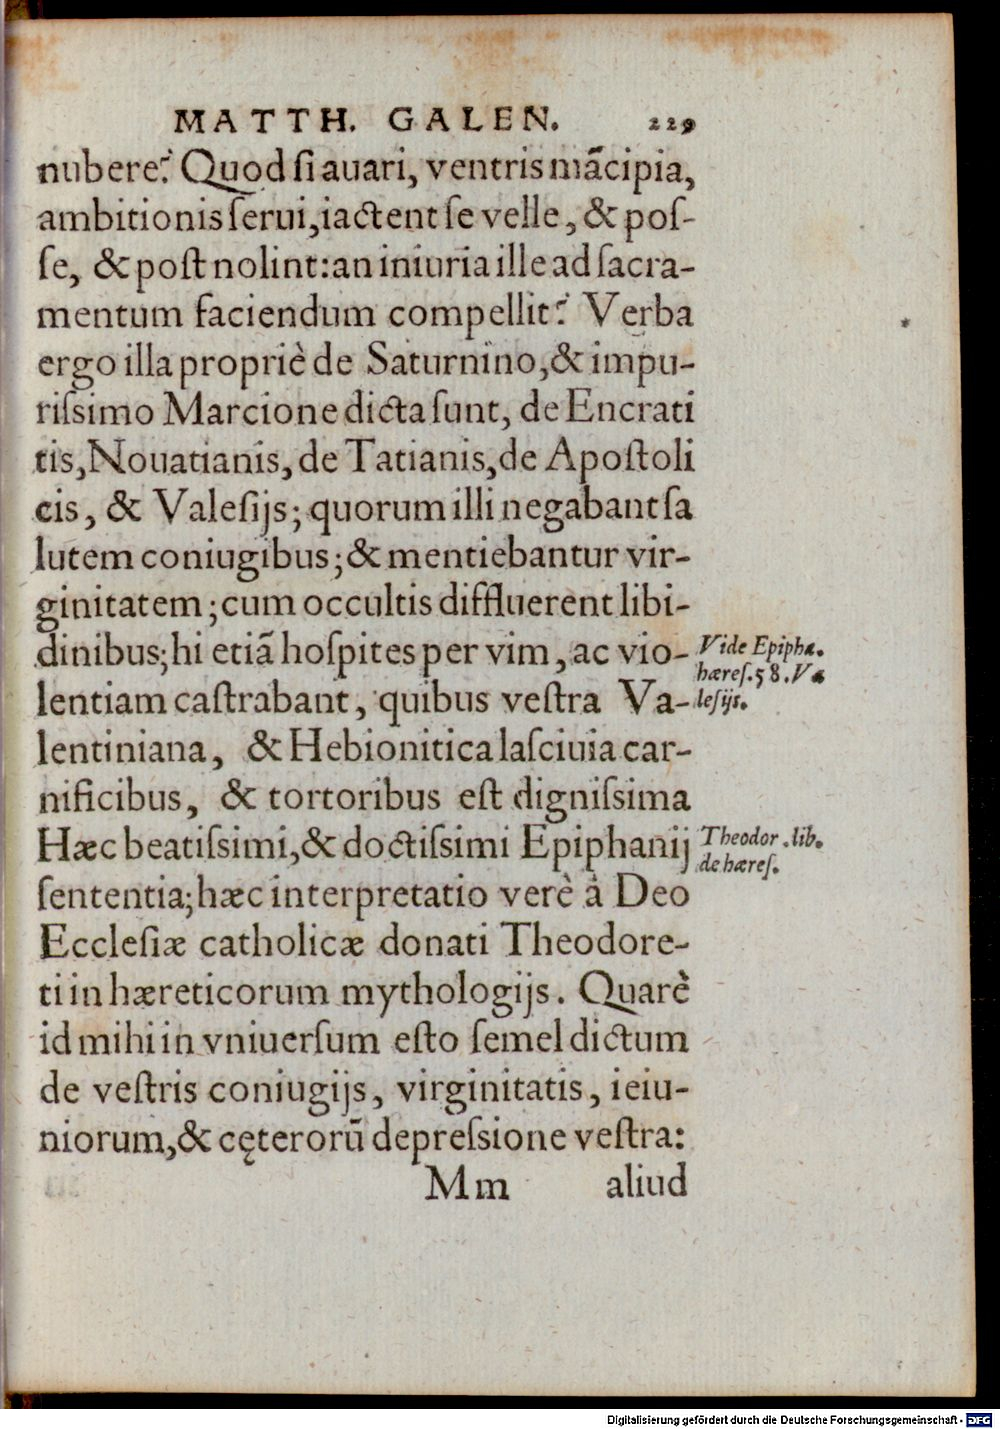 MATTH. GALEN. 229
nubere? Quod ſi auari, ventris mãcipia,
ambitionis ſerui, iactent ſe velle, & poſ-
ſe, & poſt nolint: an iniuria ille ad ſacra-
mentum faciendum compellit? Verba
ergo illa propriè de Saturnino, & impu-
riſsimo Marcione dicta ſunt, de Encrati
tis, Nouatianis, de Tatianis, de Apoſtoli
cis, & Valeſijs; quorum illi negabant ſa
lutem coniugibus; & mentiebantur vir-
ginitatem; cum occultis diffluerent libi-
dinibus; hi etiã hoſpites per vim, ac vio-
lentiam caſtrabant, quibus veſtra Va-
lentiniana, & Hebionitica laſciuia car-
nificibus, & tortoribus eſt digniſsima
Hæc beatiſsimi, & doctiſsimi Epiphanij
ſententia; hæc interpretatio verè à Deo
Eccleſiæ catholicæ donati Theodore-
ti in hæreticorum mythologijs. Quarè
id mihi in vniuerſum eſto ſemel dictum
de veſtris coniugijs, virginitatis, ieiu-
niorum, & cęterorũ depreſsione veſtra:
Mm aliud
Vide Epipha.
hæreſ. 58. Va
leſijs.
Theodor. lib.
de hæreſ.
Digitalisierung gefördert durch die Deutsche Forschungsgemeinschaft - DFG